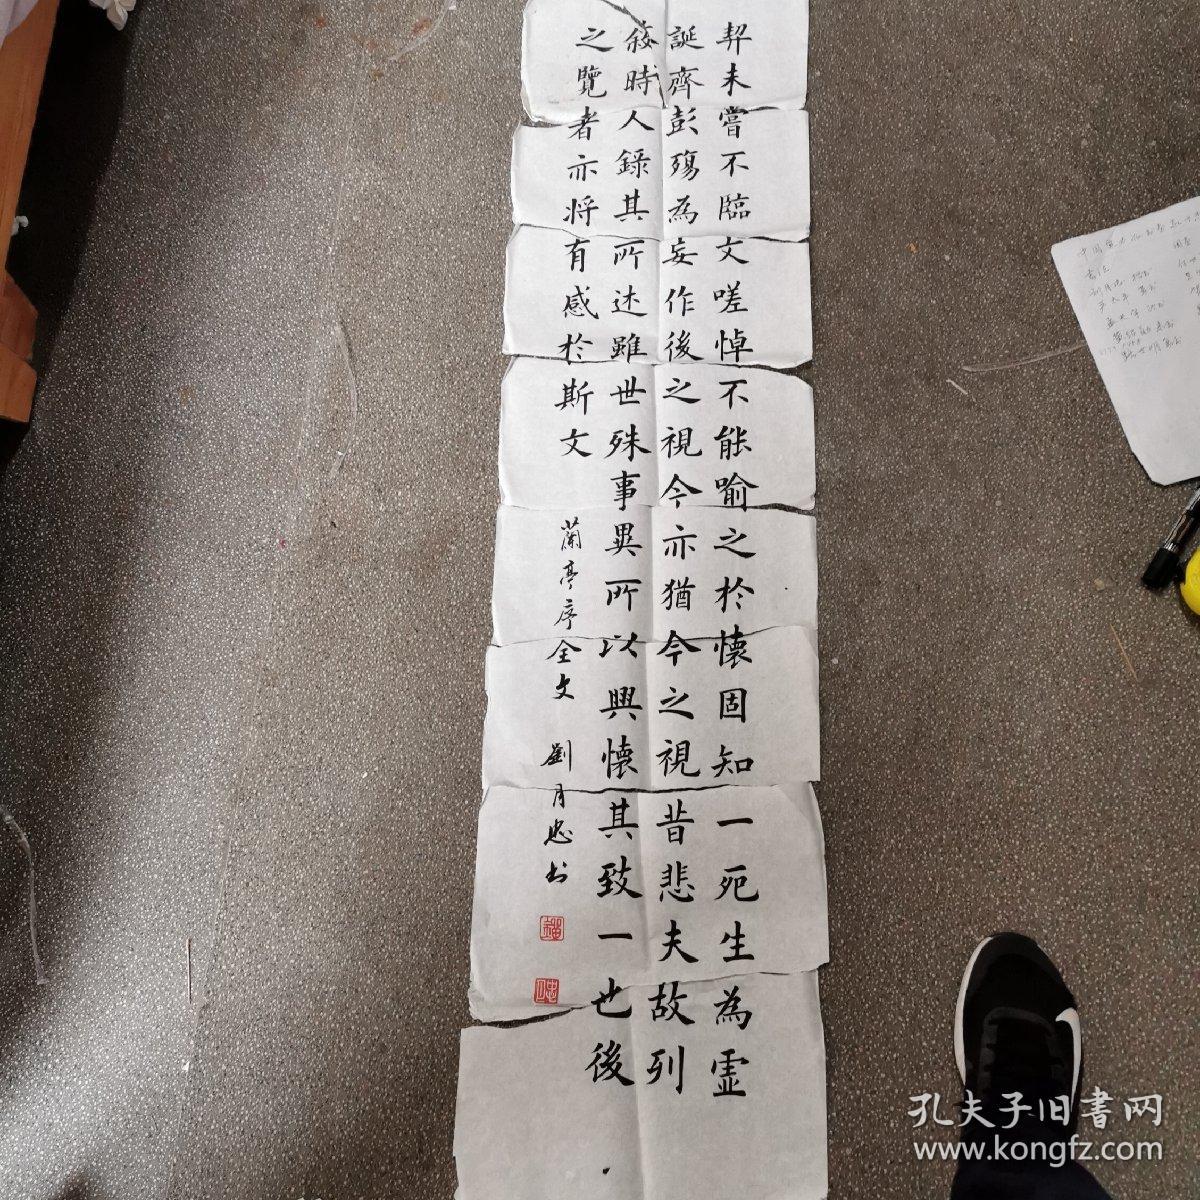 契未嘗不臨文嗟悼不能喻之於懐固知一死生為虚
誕齊彭殤為妄作後之視今亦猶今之視昔悲夫故列
敘時人錄其所述雖世殊事異所以興懐其致一也後
之覽者亦将有感於斯文
蘭亭序全文 劉月忠书
孔夫子旧書网
www.kongfz.com